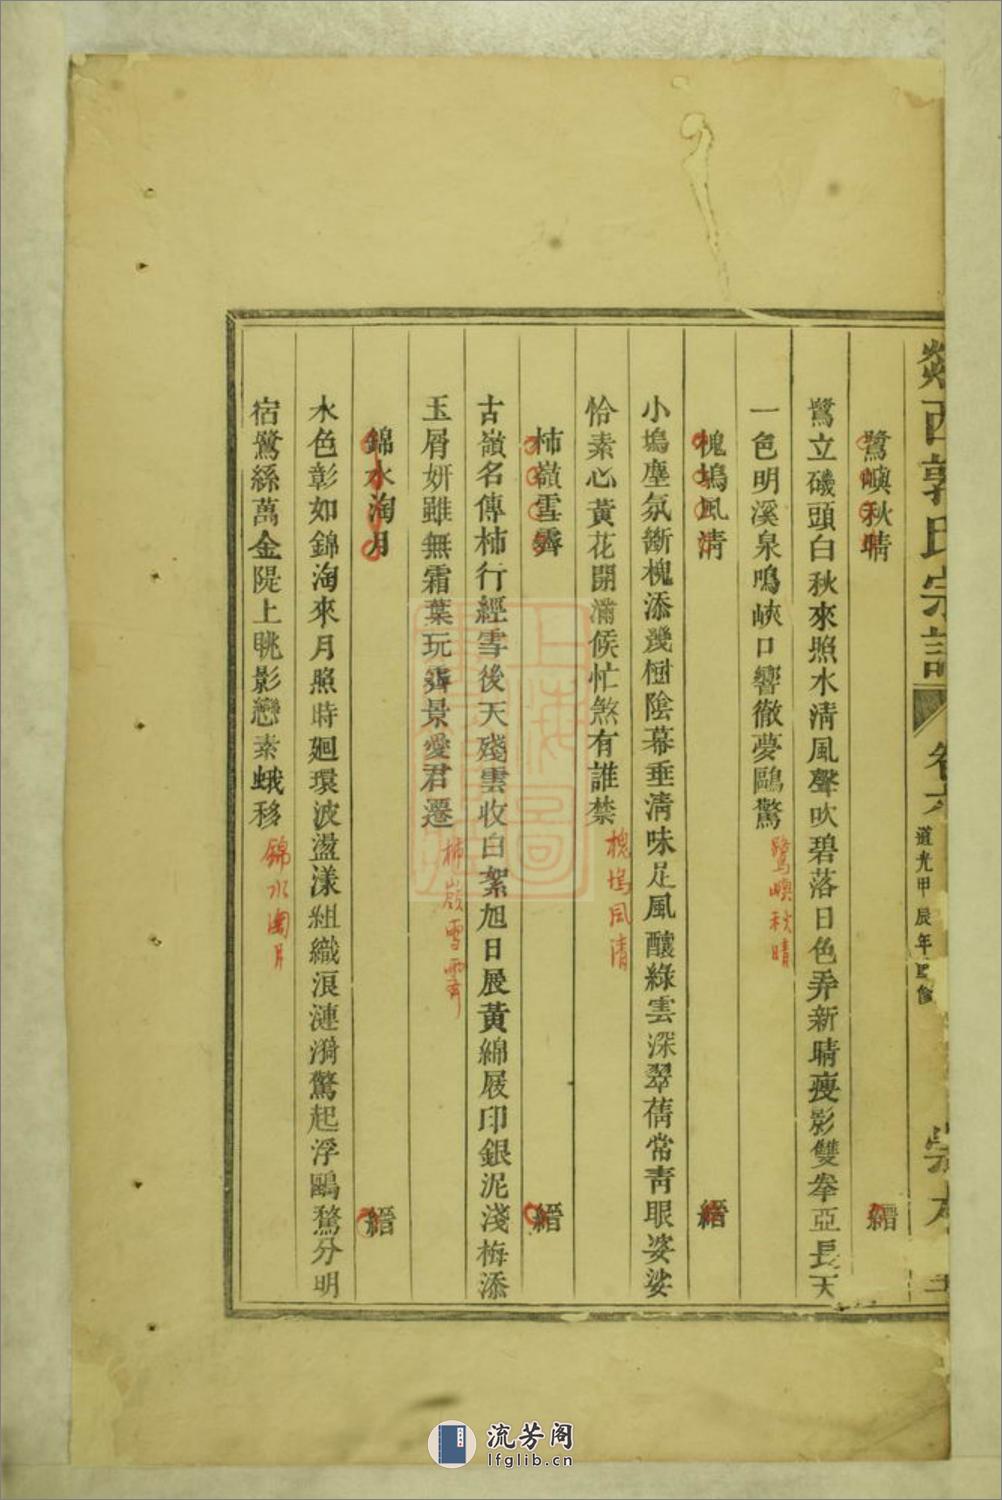 西郭氏宗譜
卷六
道光甲辰年重修
鷺嶼秋晴
縉
鷺立磯頭白秋來照水清風聲吹碧落日色弄新晴瘦影雙拳亞長天
一色明溪泉鳴峽口響徹夢鷗驚
鷺嶼秋晴
槐塢風清
縉
小塢塵氛斷槐添幾樹陰幕垂清味足風釀綠雲深翠蒨常靑眼婆娑
恰素心黃花開滿候忙煞有誰禁
槐塢風清
柿嶺雪霽
縉
古嶺名傳柿行經雪後天殘雲收白絮旭日展黃綿屐印銀泥淺梅添
玉屑妍雖無霜葉玩霽景愛君遷
柿嶺雪霽
錦水淘月
縉
水色彰如錦淘來月照時廻環波盪漾組織浪漣漪驚起浮鷗鶩分明
宿鷺絲萬金隄上眺影戀素蛾移
錦水淘月
上海圖
流芳阁
lfglib.cn